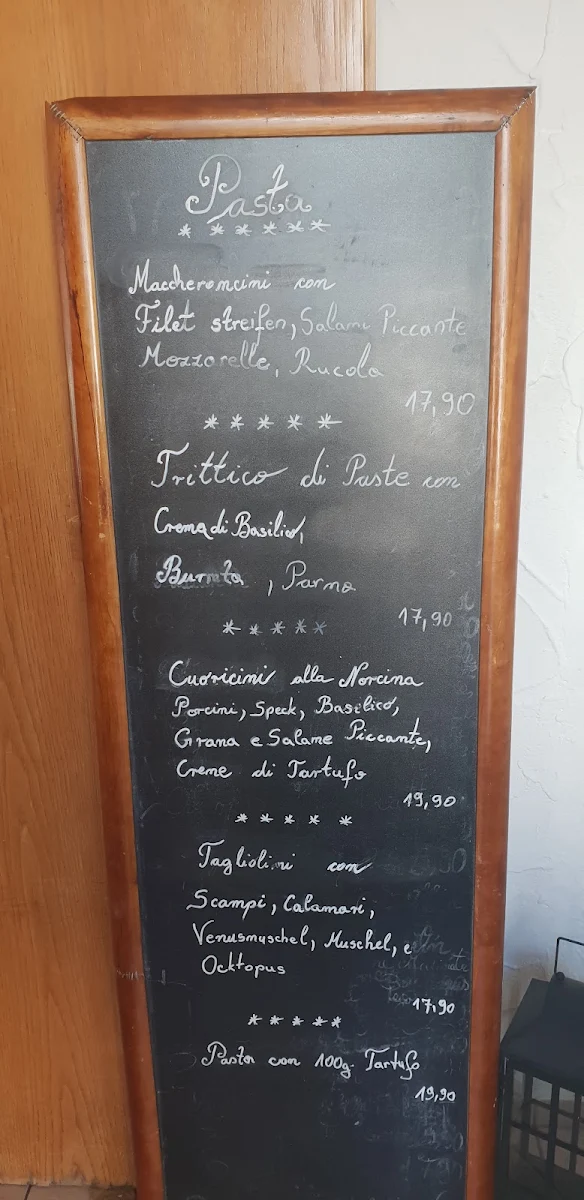 Pasta
*****
Maccheroncini con
Filet streifen, Salami Piccante
Mozzarella, Rucola
17,90
*****
Trittico di Paste con
Crema di Basilico,
Burrata, Parma
17,90
*****
Cuoricini alla Norcina
Porcini, Speck, Basilico,
Grana e Salame Piccante,
Creme di Tartufo
19,90
*****
Tagliolini con
Scampi, Calamari,
Venusmuschel, Muschel, e
Ocktopus
17,90
*****
Pasta con 100g. Tartufo
19,90